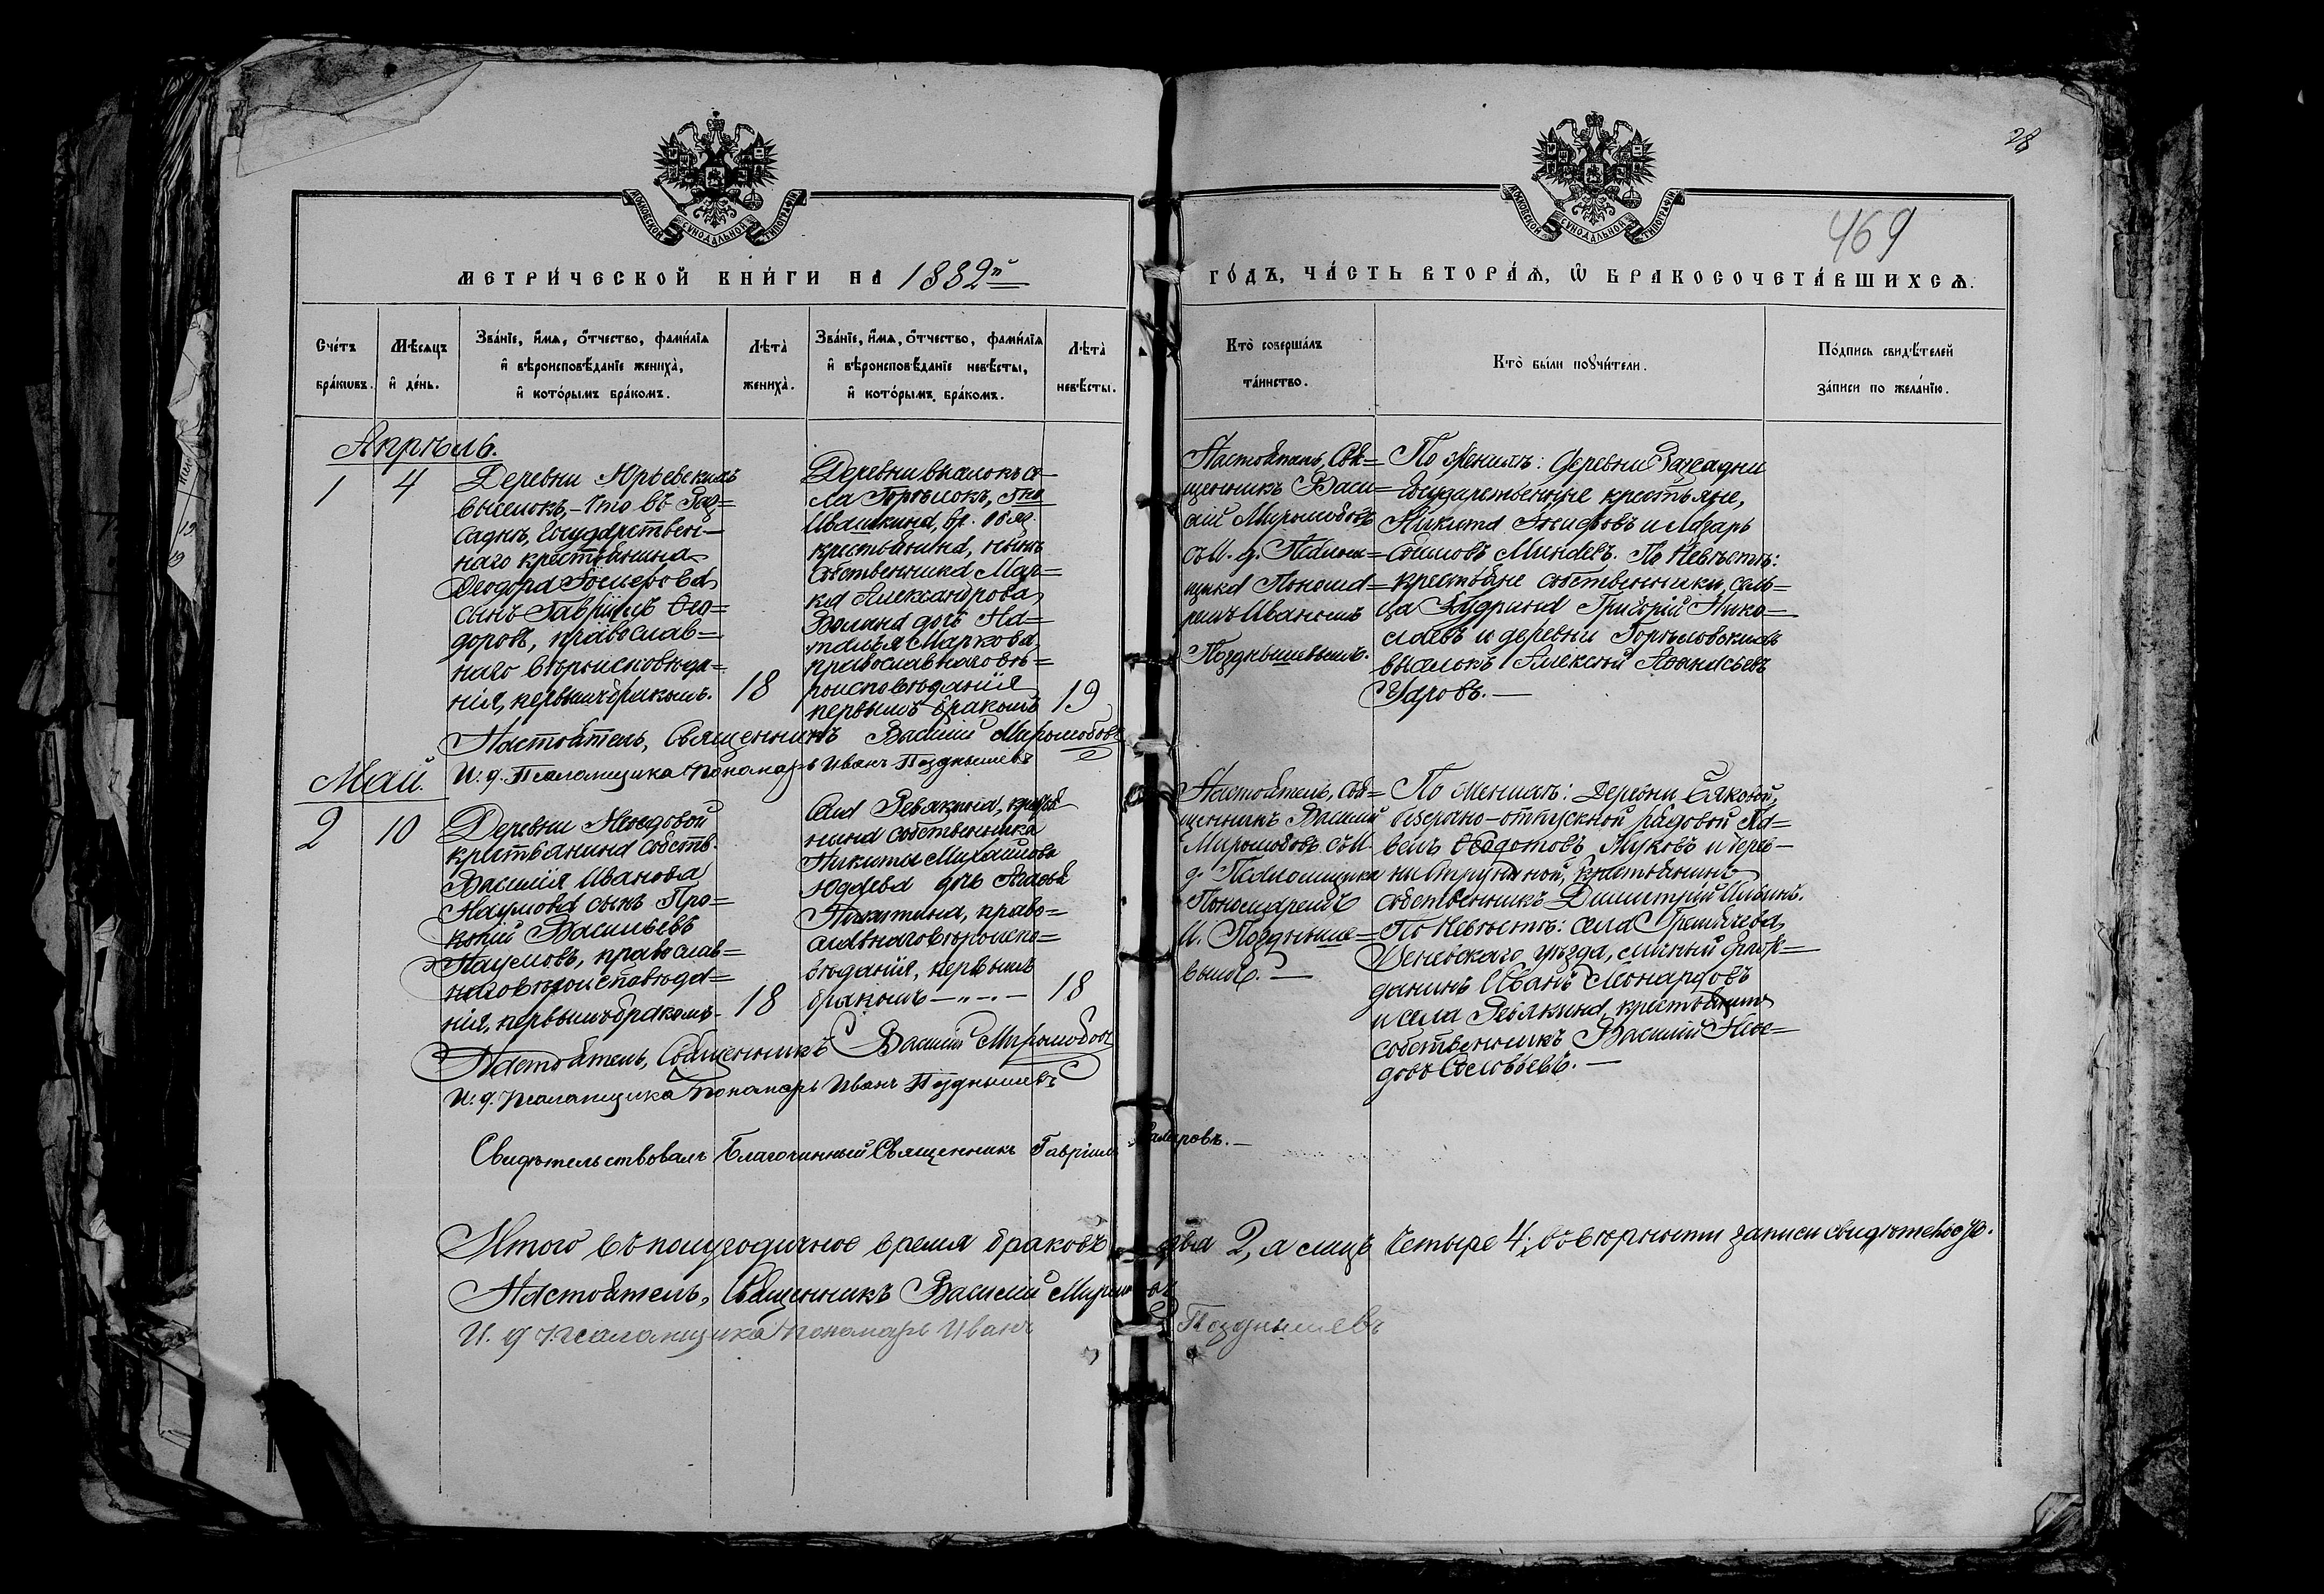 28
469
МОСКОВСКОЙ СѴНОДАЛЬНОЙ ТИПОГРАФІИ
МОСКОВСКОЙ СѴНОДАЛЬНОЙ ТИПОГРАФІИ
МЕТРИ́ЧЕСКОЙ КНИ́ГИ НА 1882й
ГО́ДЪ, ЧА́СТЬ ВТОРА́Ѧ, Ѿ БРАКОСОЧЕТА́ВШИХСѦ.
Сче́тъ бра́ковъ.
Мѣ́сяцъ и де́нь.
Зва́нїе, и́мя, о́тчество, фами́лїя
и вѣроисповѣ́данїе жениха̀,
и кото́рымъ бра́комъ.
Лѣта̀
жениха̀.
Зва́нїе, и́мя, о́тчество, фами́лїя
и вѣроисповѣ́данїе невѣ́сты,
и кото́рымъ бра́комъ.
Лѣта̀
невѣ́сты.
Кто̀ соверша́лъ
та́инство.
Кто̀ бы́ли поꙋчи́тели.
По́дпись свидѣ́телей
за́писи по жела́нїю.
Апрѣль.
1
4
Деревни Юрьевскихъ
выселокъ, что въ
садкѣ, Государствен-
наго крестьянина
Ѳеодора
сынъ Гавріилъ Ѳео=
доровъ, православ=
наго вѣроисповѣда=
нія, первымъ бракомъ.
18
Деревни выселокъ се-
ла
крестьянина, нынѣ
собственника Мар=
ка Александрова
дочь На=
талья Маркова,
православнаго вѣ=
роисповѣданія
первымъ бракомъ
19
Настоятель, Свя=
щенникъ Васи=
лій Миролюбовъ
съ И. д. Псалом=
щика Понома=
ремъ Иваномъ
Позднышевымъ.
По женихѣ: деревни
Государственные крестьяне,
Никита и Лазарь
По невѣстѣ:
крестьяне собственники, сель=
ца Кудрина Григорій Нико=
лаевъ и деревни
выселокъ Алексѣй Аѳанасьевъ
Уаровъ. —
Настоятель, Священникъ Василій Миролюбовъ
И. д. Псаломщика Пономарь Иванъ Позднышевъ
Май.
2
10
Деревни
крестьянина собств.
Василія Иванова
Наумова сынъ Про=
копій Васильевъ
Наумовъ, православ=
наго вѣроисповѣда=
нія, первымъ бракомъ
18
Села Ревякина, крестья
нина собственника
Никиты Михайлова
Юдаева дочь Агаѳья
Никитина, право=
славнаго вѣроиспо=
вѣданія, первымъ
бракомъ —„—„—
18
Настоятель, Свя=
щенникъ Василій
Миролюбовъ съ И.
д. Псаломщика
Пономаремъ
И. Поздныше=
вымъ. —
По женихѣ: Деревни
безсрочно-отпускной рядовой Па=
велъ Ѳедотовъ Жуковъ и дерев=
ни крестьянинъ
собственникъ Димитрій Ильинъ.
По невѣстѣ: села
уѣзда, личный граж=
данинъ Иванъ Леонардовъ
и села Ревякина, крестьянинъ
собственникъ Василій
Соловьевъ. —
Настоятель, Священникъ Василій Миролюбовъ
И. д. Псаломщика Пономарь Иванъ Позднышевъ
Свидѣтельствовалъ Благочинный Священникъ Гавріилъ
Итого въ полугодичное время браковъ два 2, а лицъ четыре 4; въ вѣрности записи свидѣтельствуе.
Настоятель, Священникъ Василій Миролюбовъ
И. д. Псаломщика Пономарь Иванъ Позднышевъ